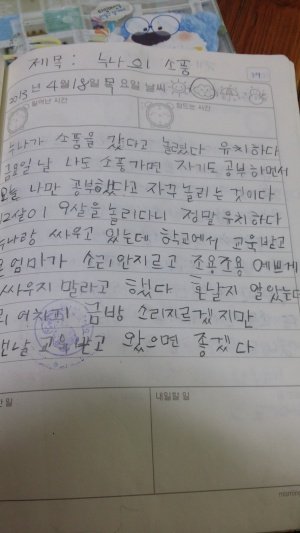 제목: 누나의 소풍
2013년 4월 18일 목요일 날씨
일어난 시간
잠드는 시간
누나가 소풍을 갔다고 놀렸다 유치하다
금요일날 나도 소풍가면 자기도 공부하면서
오늘 나만 공부했다고 자꾸 놀리는 것이다
12살이 9살을 놀리다니 정말 유치하다
누나랑 싸우고 있는데 학교에서 교육받고
온 엄마가 소리안지르고 조용조용 예쁘게
싸우지 말라고 했다 혼날지 알았는데
어차피 금방 소리지르겠지만
맨날 교육받고 왔으면 좋겠다
한 일
내일할 일